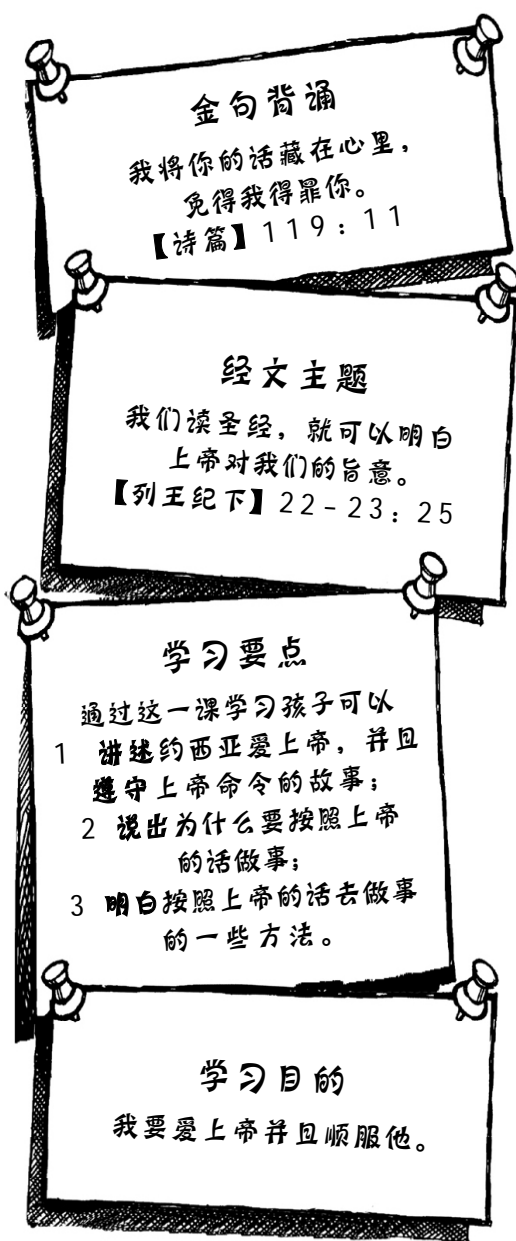 金句背诵
我将你的话藏在心里，
免得我得罪你。
【诗篇】119：11
经文主题
我们读圣经，就可以明白
上帝对我们的旨意。
【列王纪下】22-23：25
学习要点
通过这一课学习孩子可以
1 讲述约西亚爱上帝，并且
遵守上帝命令的故事；
2 说出为什么要按照上帝
的话做事；
3 明白按照上帝的话去做事
的一些方法。
学习目的
我要爱上帝并且顺服他。